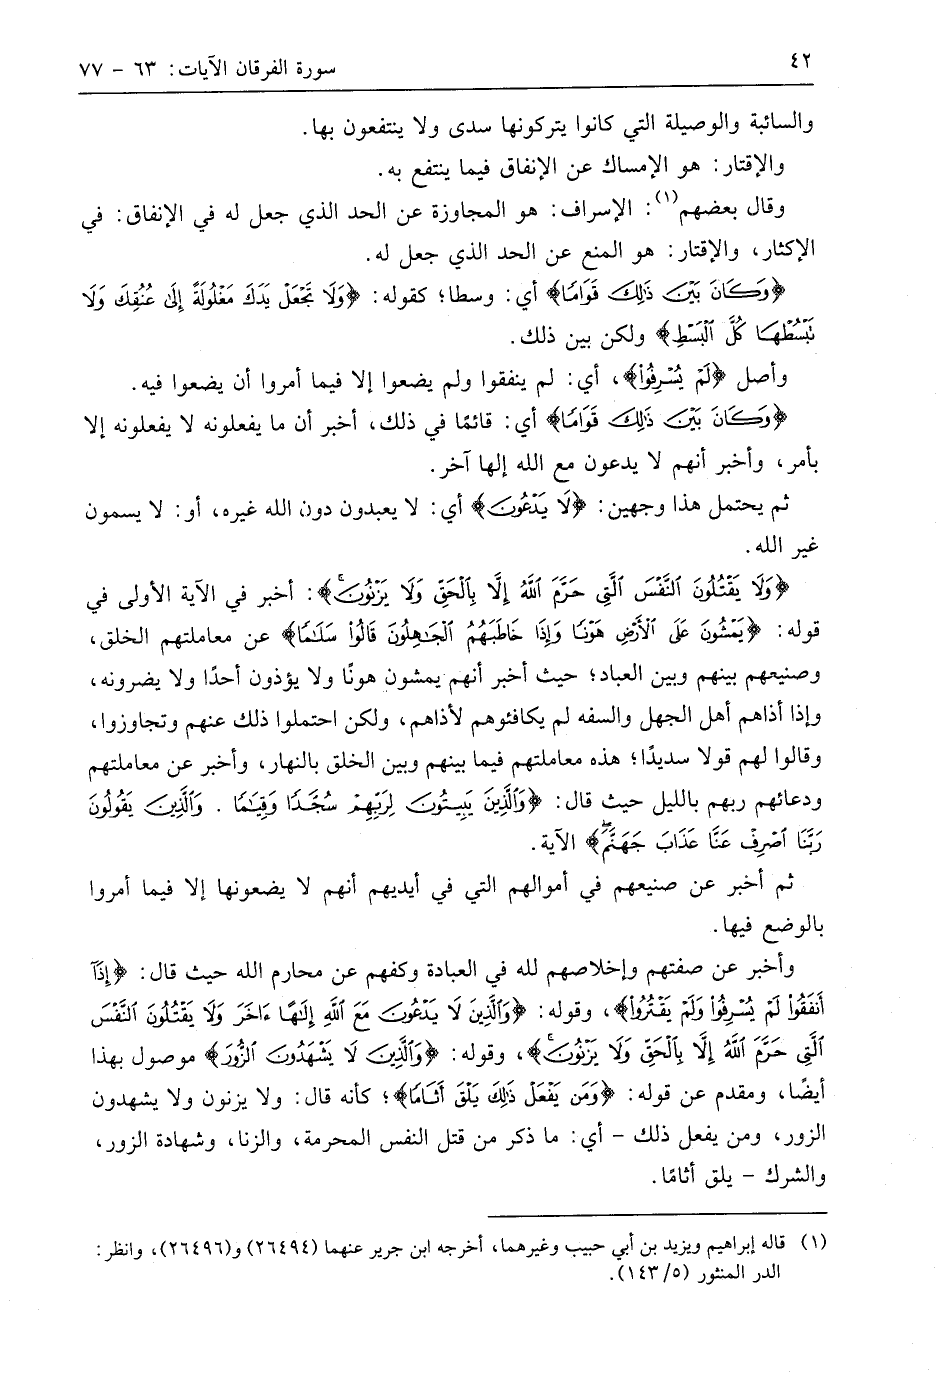 ٤٢
سورة الفرقان الآيات: ٦٣ - ٧٧
والسائبة والوصيلة التي كانوا يتركونها سدى ولا ينتفعون بها.
والإقتار: هو الإمساك عن الإنفاق فيما ينتفع به.
وقال بعضهم(١): الإسراف: هو المجاوزة عن الحد الذي جعل له في الإنفاق: في
الإكثار، والإقتار: هو المنع عن الحد الذي جعل له.
﴿وَكَانَ بَيْنَ ذَٰلِكَ قَوَامًا﴾ أي: وسطا؛ كقوله: ﴿وَلَا تَجْعَلْ يَدَكَ مَغْلُولَةً إِلَىٰ عُنُقِكَ وَلَا
تَبْسُطْهَا كُلَّ ٱلْبَسْطِ﴾ ولكن بين ذلك.
وأصل ﴿لَمْ يُسْرِفُوا۟﴾، أي: لم ينفقوا ولم يضعوا إلا فيما أمروا أن يضعوا فيه.
﴿وَكَانَ بَيْنَ ذَٰلِكَ قَوَامًا﴾ أي: قائمًا في ذلك، أخبر أن ما يفعلونه لا يفعلونه إلا
بأمر، وأخبر أنهم لا يدعون مع الله إلها آخر.
ثم يحتمل هذا وجهين: ﴿لَا يَدْعُونَ﴾ أي: لا يعبدون دون الله غيره، أو: لا يسمون
غير الله.
﴿وَلَا يَقْتُلُونَ ٱلنَّفْسَ ٱلَّتِي حَرَّمَ ٱللَّهُ إِلَّا بِٱلْحَقِّ وَلَا يَزْنُونَۚ﴾: أخبر في الآية الأولى في
قوله: ﴿يَمْشُونَ عَلَى ٱلْأَرْضِ هَوْنًا وَإِذَا خَاطَبَهُمُ ٱلْجَٰهِلُونَ قَالُوا۟ سَلَٰمًا﴾ عن معاملتهم الخلق،
وصنيعهم بينهم وبين العباد؛ حيث أخبر أنهم يمشون هونًا ولا يؤذون أحدًا ولا يضرونه،
وإذا أذاهم أهل الجهل والسفه لم يكافئوهم لأذاهم، ولكن احتملوا ذلك عنهم وتجاوزوا،
وقالوا لهم قولا سديدًا؛ هذه معاملتهم فيما بينهم وبين الخلق بالنهار، وأخبر عن معاملتهم
ودعائهم ربهم بالليل حيث قال: ﴿وَٱلَّذِينَ يَبِيتُونَ لِرَبِّهِمْ سُجَّدًا وَقِيَٰمًا . وَٱلَّذِينَ يَقُولُونَ
رَبَّنَا ٱصْرِفْ عَنَّا عَذَابَ جَهَنَّمَۖ﴾ الآية.
ثم أخبر عن صنيعهم في أموالهم التي في أيديهم أنهم لا يضعونها إلا فيما أمروا
بالوضع فيها.
وأخبر عن صفتهم وإخلاصهم لله في العبادة وكفهم عن محارم الله حيث قال: ﴿إِذَآ
أَنفَقُوا۟ لَمْ يُسْرِفُوا۟ وَلَمْ يَقْتُرُوا۟﴾، وقوله: ﴿وَٱلَّذِينَ لَا يَدْعُونَ مَعَ ٱللَّهِ إِلَٰهًا ءَاخَرَ وَلَا يَقْتُلُونَ ٱلنَّفْسَ
ٱلَّتِي حَرَّمَ ٱللَّهُ إِلَّا بِٱلْحَقِّ وَلَا يَزْنُونَۚ﴾، وقوله: ﴿وَٱلَّذِينَ لَا يَشْهَدُونَ ٱلزُّورَ﴾ موصول بهذا
أيضًا، ومقدم عن قوله: ﴿وَمَن يَفْعَلْ ذَٰلِكَ يَلْقَ أَثَامًا﴾؛ كأنه قال: ولا يزنون ولا يشهدون
الزور، ومن يفعل ذلك - أي: ما ذكر من قتل النفس المحرمة، والزنا، وشهادة الزور،
والشرك - يلق أثامًا.
(١) قاله إبراهيم ويزيد بن أبي حبيب وغيرهما، أخرجه ابن جرير عنهما (٢٦٤٩٤) و(٢٦٤٩٦)، وانظر:
الدر المنثور (١٤٣/٥).